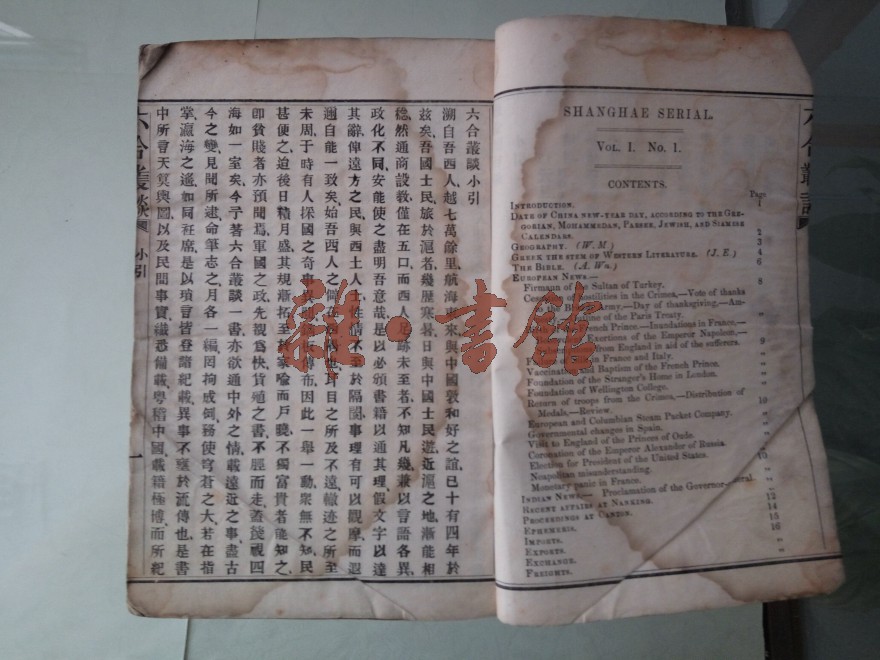 SHANGHAE SERIAL.
VOL. I. No. 1.
CONTENTS.
Page
INTRODUCTION. 1
DATE OF CHINA NEW-YEAR DAY, ACCORDING TO THE GRE-
GORIAN, MOHAMMEDAN, PARSEE, JEWISH, AND SIAMESE
CALENDARS. 2
GEOGRAPHY. (W. M.) 3
GREEK THE STEM OF WESTERN LITERATURE. (J. E.) 4
THE BIBLE. (A. Wn.) 6
EUROPEAN NEWS.— 8
Firmann of the Sultan of Turkey.
of hostilities in the Crimea,—Vote of thanks
to the Army.—Day of thanksgiving.
of the Paris Treaty.
French Prince.—Inundations in France,—
Exertions of the Emperor Napoleon,—
from England in aid of the sufferers.
in France and Italy.
Vaccination and Baptism of the French Prince.
Foundation of the Stranger's Home in London.
Foundation of Wellington College.
Return of troops from the Crimea,—Distribution of
Medals.—Review. 10
European and Columbian Steam Packet Company.
Governmental changes in Spain.
Visit to England of the Princes of Oude.
Coronation of the Emperor Alexander of Russia.
Election for President of the United States.
Neapolitan misunderstanding.
Monetary panic in France.
INDIAN NEWS.— Proclamation of the Governor-
RECENT AFFAIRS AT NANKING. 12
PROCEEDINGS AT CANTON. 14
EPHEMERIS. 15
IMPORTS. 16
EXPORTS.
EXCHANGE.
FREIGHTS.
六合叢談
六合叢談小引
溯自吾西人、越七萬餘里、航海東來、與中國敦和好之誼、已十有四年於
茲矣、吾國士民旅於滬者、幾歷寒暑、日與中國士民遊、近滬之地、漸能相
稔、然通商設教、僅在五口、而西人足跡未至者、不知凡幾、兼以言語各異、
政化不同、安能使之盡明吾意哉、是以必頒書籍以通其理、假文字以達
其辭、俾遠方之民與西土人士性情不至於隔閡、事理有可以觀摩、而遐
邇自能一致矣、始吾西人之僻在西陲也、耳目之所及不遠、轍迹之所至
未周、于時有人採國之奇事傳布、因此一舉一動、衆無不知、民
甚便之、迨後日積月盛、其規漸拓、至於家喻而戶曉、不獨富貴者能知之、
即貧賤者亦預聞焉、軍國之政、先覩為快、貨殖之書、不脛而走、蓋視四
海如一室矣、今予著六合叢談一書、亦欲通中外之情、載遠近之事、盡古
今之變、見聞所逮、命筆志之、月各一編、罔拘成例、務使穹蒼之大、若在指
掌、瀛海之遙、如同衽席、是以瑣言皆登諸紀載、異事不壅於流傳也、是書
中所言天算輿圖、以及民間事實、纖悉備載、粵稽中國、載籍極博、而所紀
六合叢談 小引 一
雜·書館